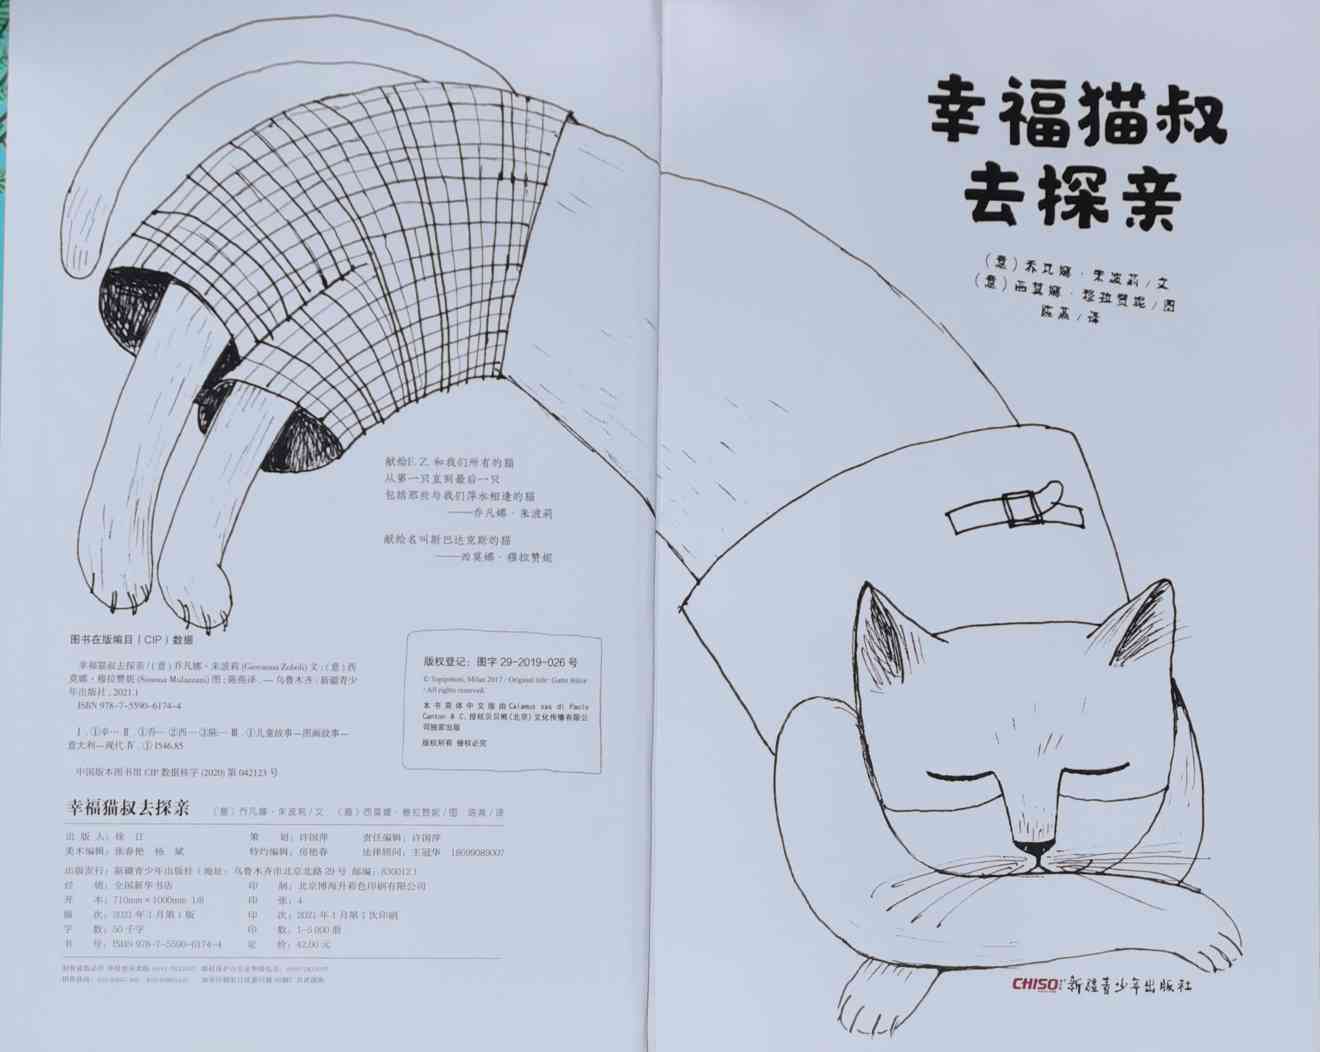 献给E. Z. 和我们所有的猫
从第一只直到最后一只
包括那些与我们萍水相逢的猫
——乔凡娜·朱波莉
献给名叫斯巴达克斯的猫
——西莫娜·穆拉赞妮
图书在版编目（CIP）数据
幸福猫叔去探亲 / （意）乔凡娜·朱波莉 (Giovanna Zoboli) 文；（意）西
莫娜·穆拉赞妮 (Simona Mulazzani) 图；陈燕译. — 乌鲁木齐：新疆青少
年出版社, 2021.1
ISBN 978-7-5590-6174-4
Ⅰ. ①幸… Ⅱ. ①乔… ②西… ③陈… Ⅲ. ①儿童故事—图画故事—
意大利—现代 Ⅳ. ① I546.85
中国版本图书馆 CIP 数据核字 (2020) 第 042123 号
版权登记：图字 29-2019-026 号
© Topipittori, Milan 2017 / Original title: Gatto felice
· All rights reserved.
本书简体中文版由Calamus sas di Paolo
Canton & C.授权贝贝熊(北京)文化传播有限公
司独家出版
版权所有 侵权必究
幸福猫叔去探亲 （意）乔凡娜·朱波莉/文 （意）西莫娜·穆拉赞妮/图 陈燕/译
出 版 人：徐 江 策 划：许国萍 责任编辑：许国萍
美术编辑：张春艳 杨 斌 特约编辑：房艳春 法律顾问：王冠华 18699089007
出版发行：新疆青少年出版社（地址：乌鲁木齐市北京北路 29 号 邮编：830012）
经 销：全国新华书店 印 制：北京博海升彩色印刷有限公司
开 本：710mm×1000mm 1/8 印 张：4
版 次：2021 年 1 月第 1 版 印 次：2021 年 1 月第 1 次印刷
字 数：50 千字 印 数：1-5 000 册
书 号：ISBN 978-7-5590-6174-4 定 价：42.00 元
幸福猫叔
去探亲
（意）乔凡娜·朱波莉/文
（意）西莫娜·穆拉赞妮/图
陈燕/译
CHISO 新疆青少年出版社